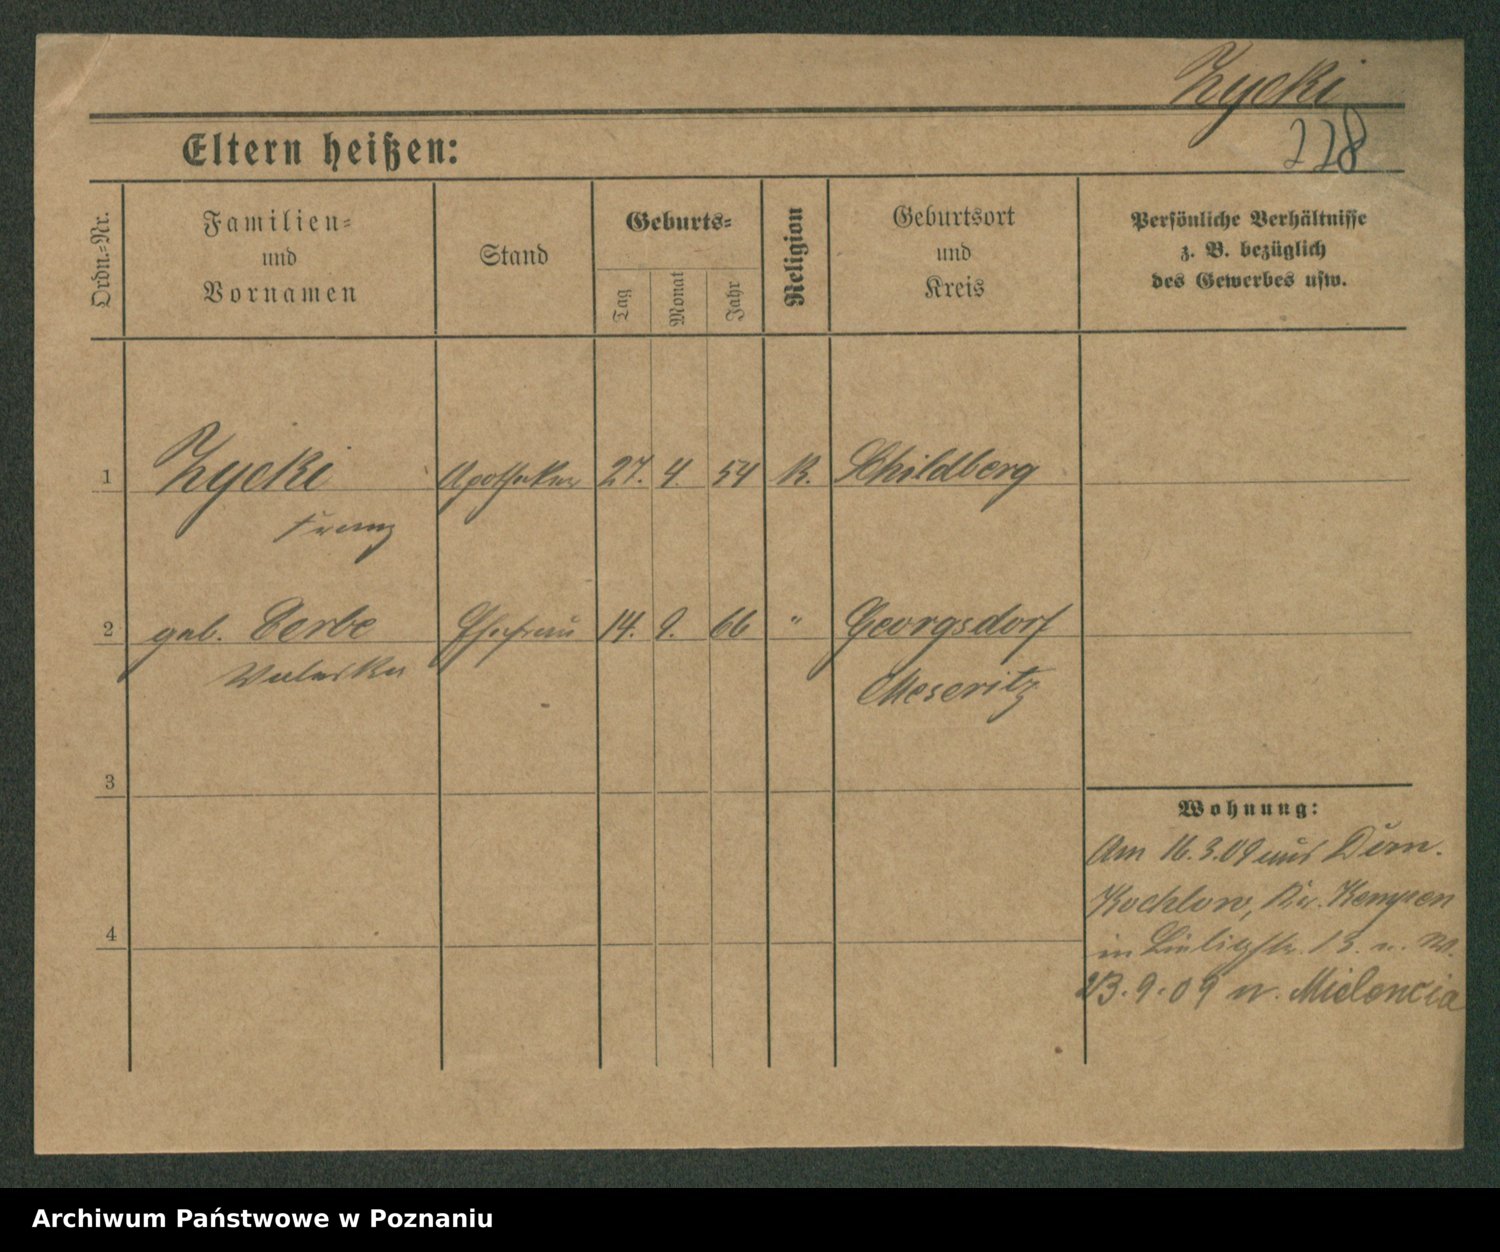 Zycki
228
Eltern heißen:
Ordn.-Nr.
Familien-
und
Vornamen
Stand
Geburts-
Tag
Monat
Jahr
Religion
Geburtsort
und
Kreis
Persönliche Verhältnisse
z. B. bezüglich
des Gewerbes usw.
1 Zycki Apotheker 27. 4. 54 K. Schildberg
Franz
2 geb. Ehefrau 14. 9. 66 " Georgsdorf
Valeska Meseritz
3
4
Wohnung:
Am 16.3.09 aus Dom.
Kochlow, Kr. Kempen
in 13. n. W.
23.9.09 n. Mielencia
Archiwum Państwowe w Poznaniu